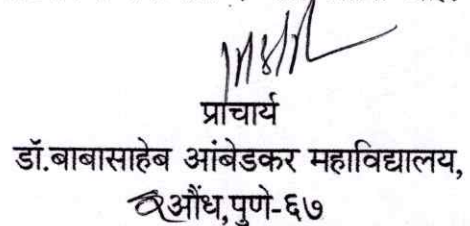 प्राचार्य
डॉ.बाबासाहेब आंबेडकर महाविद्यालय,
औंध,पुणे-६७